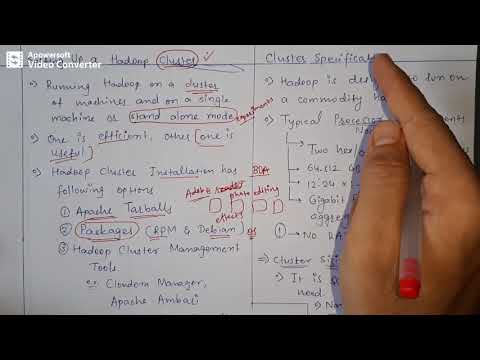 Apowersoft
Video Converter
Up a Hadoop Cluster
→ Running Hadoop on a cluster
of machines and on a single
machine or stand alone mode
→ One is efficient, other one is
useful.
→ Hadoop Cluster Installation has
following options
BDA
Adobe reader
photo editing
effects
① Apache Tarballs
② Packages (RPM & Debian) OS
③ Hadoop Cluster Management
Tools
e.g. Cloudera Manager,
Apache Ambari
Cluster Specificat
→ Hadoop is des to run on
a commodity ha
→ Typical Processor
Two hex
64-512 G
12-24 x
Gigabit
aggreg
No RA
⇒ Cluster Siz
→ It is
need